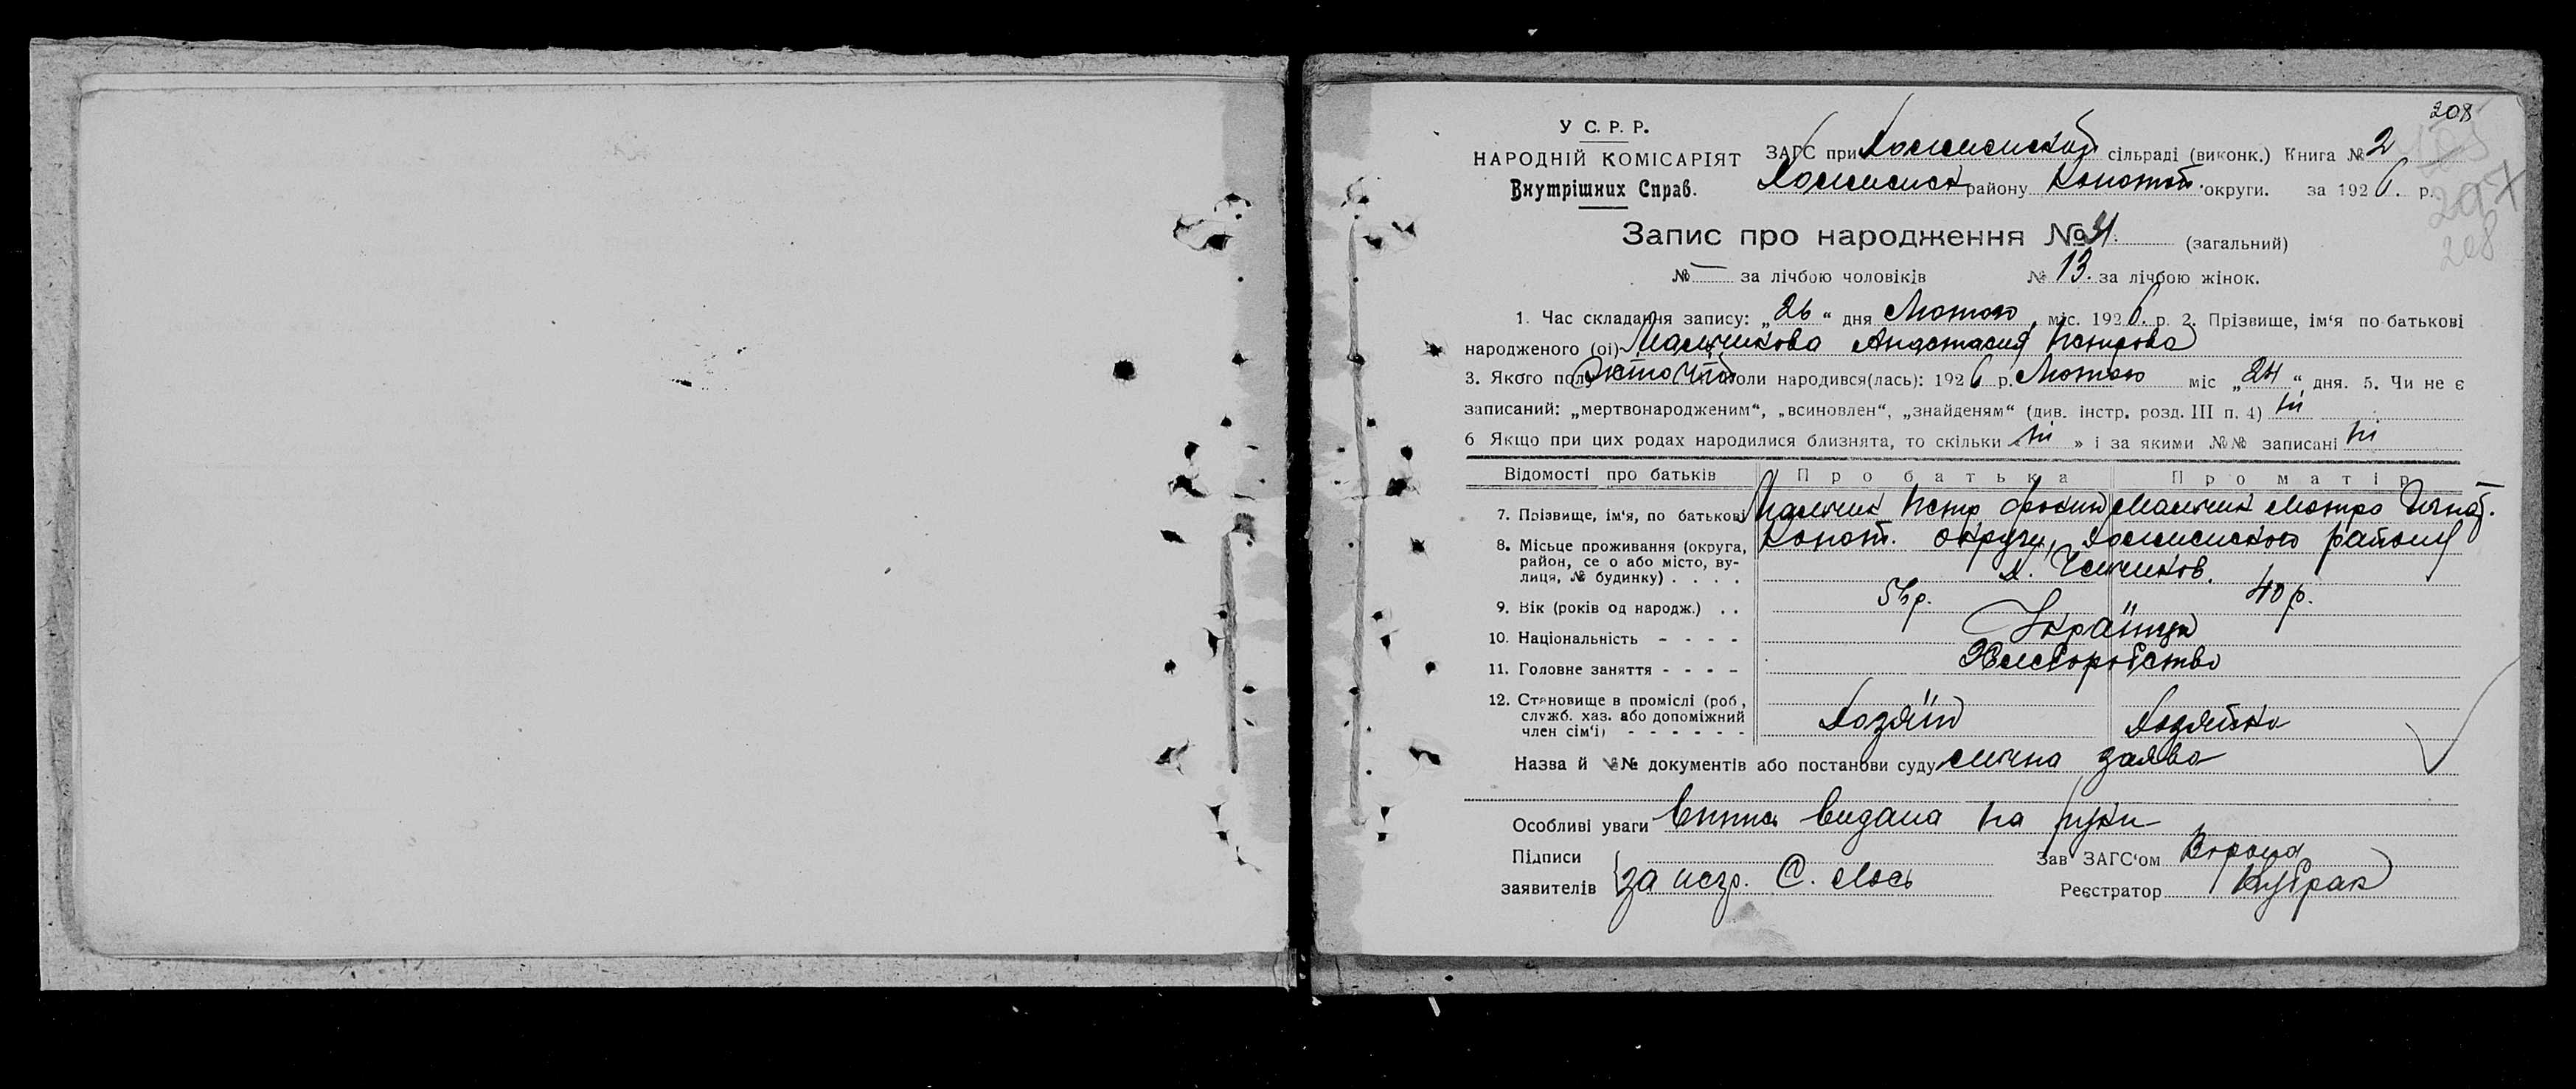 208
У С. Р. Р.
НАРОДНІЙ КОМІСАРІЯТ
Внутрішних Справ.
ЗАГС при сільраді (виконк.) Книга № 2
району Конотоп. округи. за 1926. р.
207
208
Запис про народження № (загальний)
№ — за лічбою чоловіків № 13. за лічбою жінок.
1. Час складання запису: „26“ дня Лютого міс. 1926. р. 2. Прізвище, ім'я по-батькові
народженого (ої) Анастасия Петрова
3. Якого полу Жіночої коли народився(лась): 1926 р. Лютого міс „24“ дня. 5. Чи не є
записаний: „мертвонародженим“, „всиновлен“, „знайденям“ (див. інстр. розд. III п. 4) ні
6 Якщо при цих родах народилися близнята, то скільки « ні » і за якими №№ записані ні
Відомості про батьків Про батька Про матір
7. Прізвище, ім'я, по батькові Петр Мотря Ігнат.
8. Місьце проживання (округа, Конот. округи, району
район, се о або місто, ву-
лиця, № будинку) . . . .
9. Вік (років од народж.) . . 40 р.
10. Національність - - - - Українці
11. Головне заняття - - - - Хліборобство
12. Становище в проміслі (роб,
служб. хаз. або допоміжний Хозяїн Хозяйка
член сім'ї) - - - - - -
Назва й №№ документів або постанови суду слічна заява
Особливі уваги Випись видана на руки
Підписи
заявителів за негр. С. Лось
Зав ЗАГС'ом Ворона
Реєстратор Кубрак